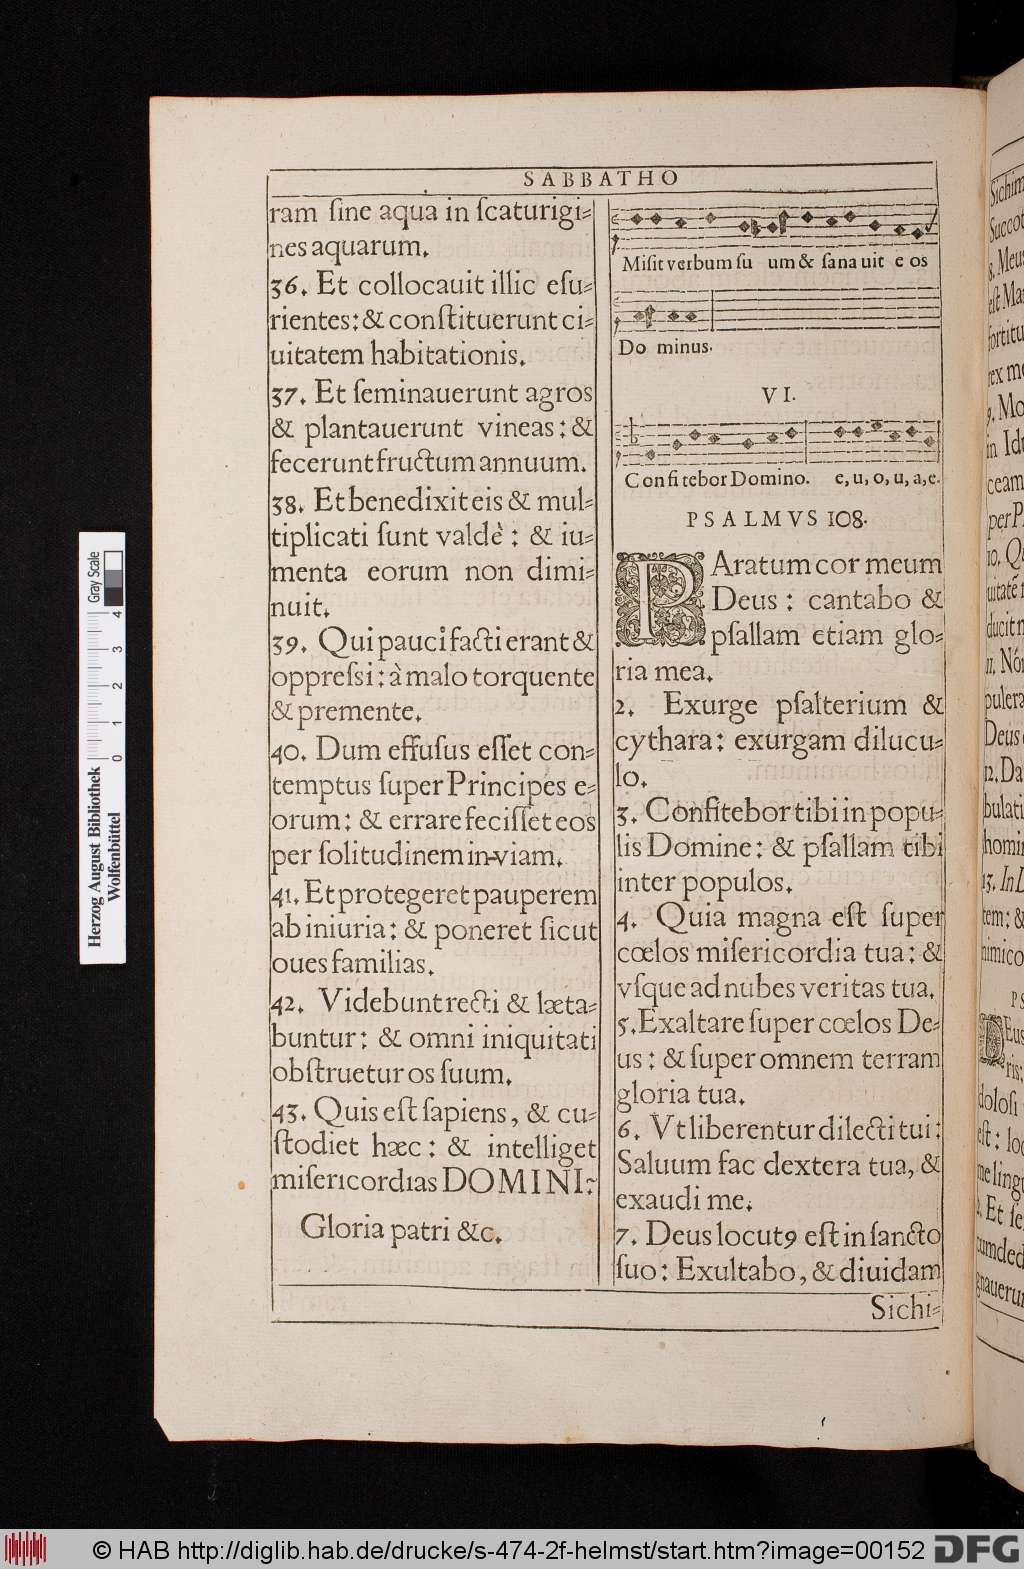 SABBATHO
ram ſine aqua in ſcaturigi=
nes aquarum.
36. Et collocauit illic eſu=
rientes: & conſtituerunt ci=
uitatem habitationis.
37. Et ſeminauerunt agros
& plantauerunt vineas: &
fecerunt fructum annuum.
38. Et benedixit eis & mul=
tiplicati ſunt valdè: & iu=
menta eorum non dimi=
nuit.
39. Qui pauci facti erant &
oppreſsi: à malo torquente
& premente.
40. Dum effuſus eſſet con=
temptus ſuper Principes e=
orum: & errare feciſſet eos
per ſolitudinem in-viam.
41. Et protegeret pauperem
ab iniuria: & poneret ſicut
oues familias.
42. Videbunt recti & læta=
buntur: & omni iniquitati
obſtruetur os ſuum.
43. Quis eſt ſapiens, & cu=
ſtodiet hæc: & intelliget
miſericordias DOMINI?
Gloria patri &c.
Miſit verbum ſu um & ſana uit e os
Do minus.
VI.
Confi tebor Domino. e, u, o, u, a, e.
PSALMVS 108.
PAratum cor meum
Deus: cantabo &
pſallam etiam glo=
ria mea.
2. Exurge pſalterium &
cythara: exurgam dilucu=
lo.
3. Confitebor tibi in popu=
lis Domine: & pſallam tibi
inter populos.
4. Quia magna eſt ſuper
cœlos miſericordia tua: &
vſque ad nubes veritas tua.
5. Exaltare ſuper cœlos De=
us: & ſuper omnem terram
gloria tua.
6. Vt liberentur dilecti tui:
Saluum fac dextera tua, &
exaudi me.
7. Deus locutꝰ eſt in ſancto
ſuo: Exultabo, & diuidam
Sichi=
Herzog August Bibliothek
Wolfenbüttel
Gray Scale
0 1 2 3 4
© HAB http://diglib.hab.de/drucke/s-474-2f-helmst/start.htm?image=00152
DFG